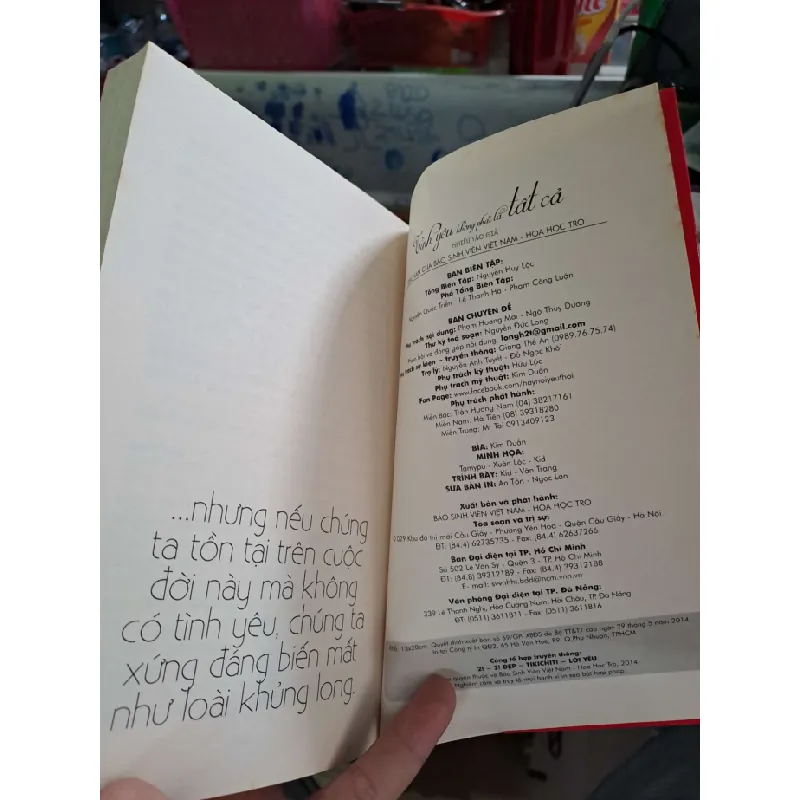 ...nhưng nếu chúng
ta tồn tại trên cuộc
đời này mà không
có tình yêu, chúng ta
xứng đáng biến mất
như loài khủng long.
Tình yêu không phải là tất cả
NHIỀU TÁC GIẢ
CỦA BÁO SINH VIÊN VIỆT NAM - HOA HỌC TRÒ
BAN BIÊN TẬP:
Tổng Biên Tập: Nguyễn Huy Lộc
Phó Tổng Biên Tập:
Lê Thanh Hà - Phạm Công Luận
BAN CHUYÊN ĐỀ
nội dung: Phạm Hương Mai - Ngô Thùy Dương
Thư ký toà soạn: Nguyễn Đức Long
và đóng góp nội dung: longh2t@gmail.com
sự kiện - truyền thông: Giang Thế An (0989.76.75.74)
Trợ lý: Nguyễn Ánh Tuyết - Đỗ Ngọc Khôi
Phụ trách kỹ thuật: Hữu Lộc
Phụ trách mỹ thuật: Kim Duẩn
Fan Page: www.facebook.com/haynoiyeuthoi
Phụ trách phát hành:
Miền Bắc: Trần Hương Nam (04) 38217161
Miền Nam: Hà Tiên (08) 39318280
Miền Trung: Mr Tá 0913409123
BÌA: Kim Duẩn
MINH HỌA:
Tamypu - Xuân Lộc - Kid
TRÌNH BÀY: Kiu - Vân Trang
SỬA BẢN IN: An Tôn - Ngọc Lan
Xuất bản và phát hành:
BÁO SINH VIÊN VIỆT NAM - HOA HỌC TRÒ
Tòa soạn và trị sự:
D29 Khu đô thị mới Cầu Giấy - Phường Yên Hòa - Quận Cầu Giấy - Hà Nội
ĐT: (84.4) 62735735 - Fax: (84.4) 62637266
Ban Đại diện tại TP. Hồ Chí Minh
Số 502 Lê Văn Sỹ - Quận 3 - TP. Hồ Chí Minh
ĐT: (84.8) 39312189 - Fax: (84.4) 39312188
E-mail:
Văn phòng Đại diện tại TP. Đà Nẵng:
Lê Thanh Nghị, Hòa Cường Nam, Hải Châu, TP. Đà Nẵng
ĐT: (0511) 3611811 - Fax: (0511) 3611816
13x20cm. Quyết định xuất bản số của Bộ TT&TT cấp ngày 29 tháng 2014
In tại Công ty in Q. Phú Nhuận, TPHCM
Cùng tổ hợp truyền thông:
2! - 2! ĐẸP - TIKICHITI - LỜI YÊU
thuộc về Báo Sinh Viên Việt Nam - Hoa Học Trò, 2014